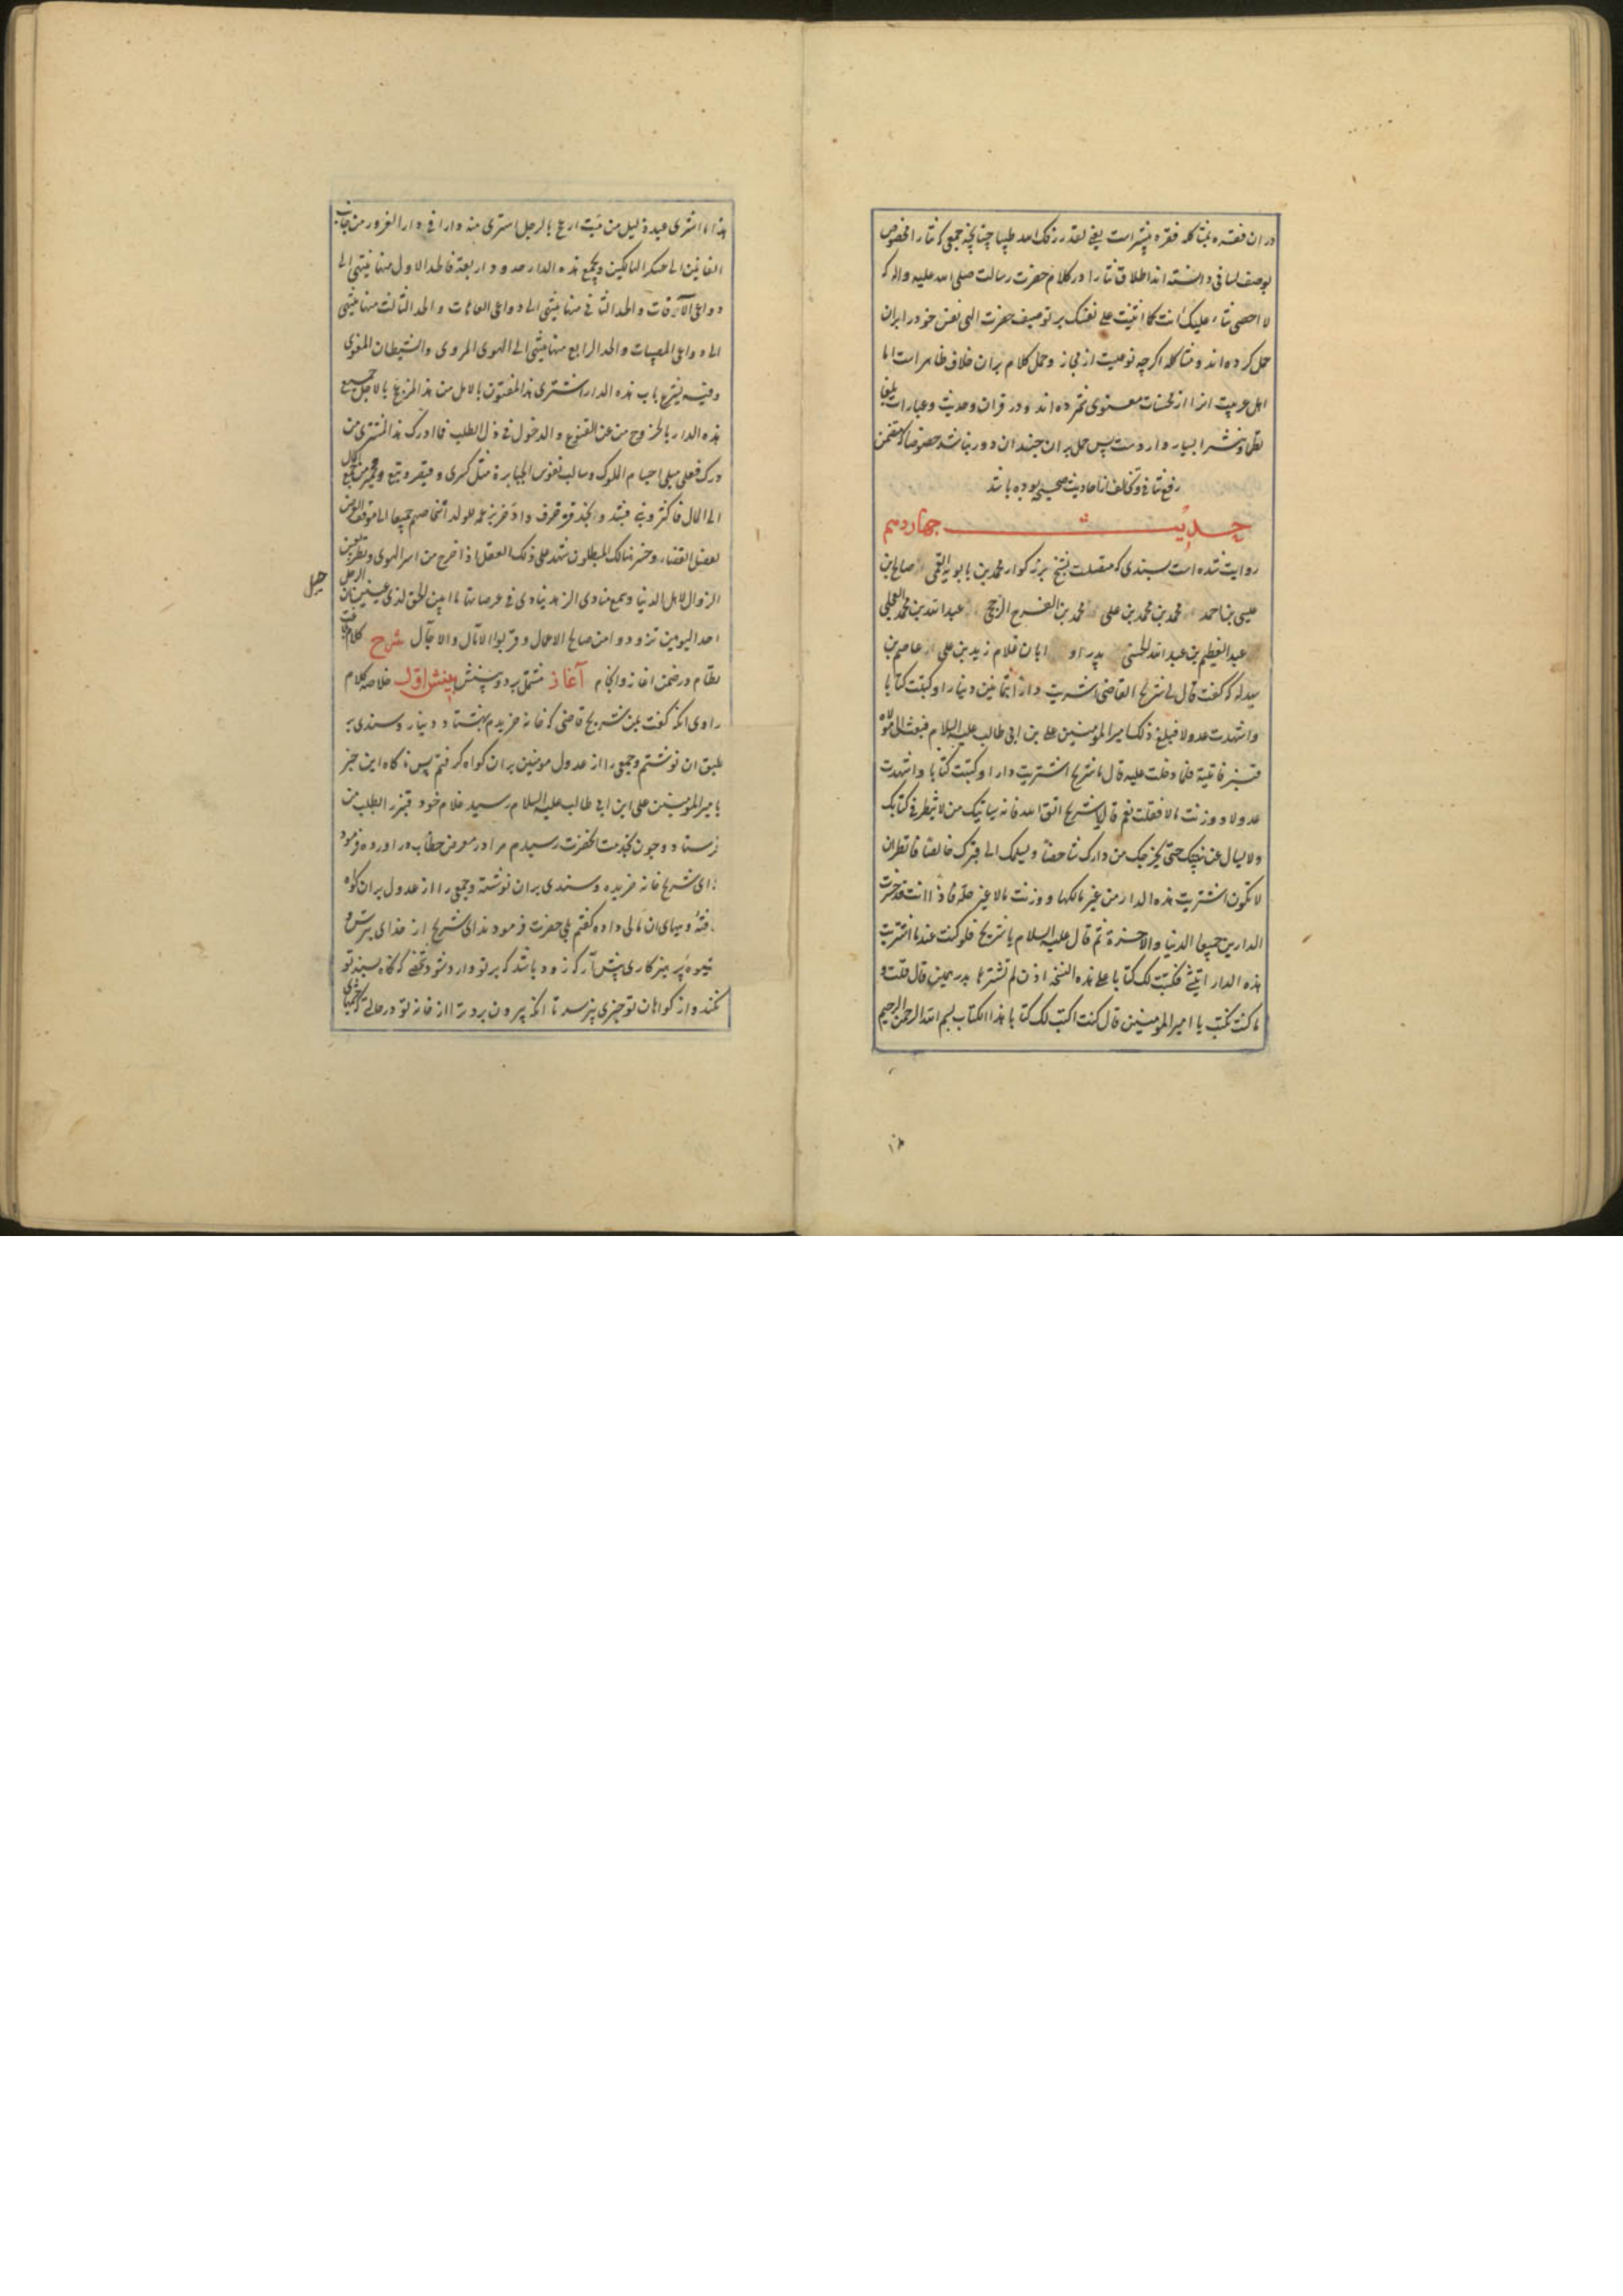 در ان فقره بمشاکله فقره پیشتراست یعنی لقد رزقک الله طیبا چنانچه جمعی که ثنا را مخصوص
بوصف لسانی دانسته اند اطلاق ثنا را در کلام حضرت رسالت صلی الله علیه واله که
لا احصی ثناء علیک انت کما اثنیت علی نفسک بر توصیف حضرت الهی نفس خود را بران
حمل کرده اند و مشاکله اگرچه نوعیت از مجاز و حمل کلام بران خلاف ظاهر است اما
اهل عربیت انرا از محسنات معنوی شمرده اند و در قران و حدیث و عبارات بلغا
نظما و نشرا بسیار واردست پس حمل بران چندان دور نباشد خصوصا که متضمن
رفع تنافی و تخالف از احادیث صحیحه بوده باشد
حدیث چهاردهم
روایت شده است بسندی که متصلست بشیخ بزرگوار محمد بن بابویه القمی از صالح بن
عیسی بن احمد از محمد بن محمد بن علی از محمد بن الفرج الرخجی از عبد الله بن محمد العجلی
از عبد العظیم بن عبد الله الحسنی از پدر او از ابان غلام زید بن علی از عاصم بن
بهدله که گفت قال لی شریح القاضی اشتریت دارا بثمانین دینارا وکتبت کتابا
واشهدت عدولا فبلغ ذلک امیر المومنین علی بن ابی طالب علیه السلام فبعث الی مولاه
قنبر فاتیته فلما دخلت علیه قال یا شریح اشتریت دارا وکتبت کتابا واشهدت
عدولا ووزنت مالا فقلت نعم قال یا شریح اتق الله فانه سیاتیک من لا ینظر فی کتابک
ولا یسال عن بینتک حتی یخرجک من دارک شاخصا ویسلمک الی قبرک خالصا فانظر ان
لا تکون اشتریت هذه الدار من غیر مالکها ووزنت مالا غیر حله فاذا انت قد خسرت
الدارین جمیعا الدنیا والاخرة ثم قال علیه السلام یا شریح فلو کنت عند ما اشتریت
هذه الدار اتیتنی فکتبت لک کتابا علی هذه النسخه اذن لم تشترها بدرهمین قال قلت و
ما کنت تکتب یا امیر المومنین قال کنت اکتب لک کتابا هذا الکتاب بسم الله الرحمن الرحیم
هذا ما اشتری عبد ذلیل من میت ازعج بالرحیل اشتری منه دارا فی دار الغرور من جانب
الفانین الی عسکر الهالکین ویجمع هذه الدار حدود اربعة فالحد الاول منها ینتهی الی
دواعی الآفات والحد الثانی منها ینتهی الی دواعی العاهات والحد الثالث منها ینتهی
الی دواعی المصیبات والحد الرابع منها ینتهی الی الهوی المردی والشیطان المغوی
وفیه یشرع باب هذه الدار اشتری هذا المفتون بالامل من هذا المزعج بالاجل جمیع
هذه الدار بالخروج من عز القنوع والدخول فی ذل الطلب فما ادرک هذا المشتری من
درک فعلی مبلی اجسام الملوک وسالب نفوس الجبابرة مثل کسری وقیصر وتبع وحمیر ومن جمع المال
الی المال فاکثر وبنی فشید وانجد فزخرف وادخر بزعمه للولد اشخاصهم جمیعا الی موقف العرض
لفصل القضاء وخسر هنالک المبطلون شهد علی ذلک العقل اذا خرج من اسر الهوی ونظر بعین
الزوال لاهل الدنیا وسمع منادی الزهد ینادی فی عرصاتها ما ابین الحق لذی عینین ان الرحیل
احد الیومین تزودوا من صالح الاعمال وقربوا الامال والاجال شرح کلام
نظام در ضمن اغاز و انجام آغاز مشتمل بر دو بینش بینش اول خلاصه کلام
راوی انکه گفت بمن شریح قاضی که خانه خریدم بهشتاد دینار و سندی بر
طبق ان نوشتم و جمعی را از عدول مومنین بران گواه گرفتم پس ناگاه این خبر
بامیر المومنین علی ابن ابی طالب علیه السلام رسید غلام خود قنبر را بطلب من
فرستاد و چون بخدمت انحضرت رسیدم مرا در معرض خطاب در اورده فرمود
ای شریح خانه خریده و سندی بران نوشته و جمعی را از عدول بران گواه
گرفته و بهای ان مالی داده گفتم بلی حضرت فرمودند ای شریح از خدای بترس و
شیوه پرهیزکاری پیش آر که زود باشد که بر تو وارد شود شخصی که نگاه بسند تو
نکند و از گواهان تو چیزی نپرسد تا انکه بیرون برد ترا از خانه تو در حالتی که